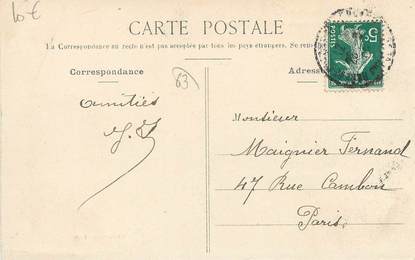 10 €
CARTE POSTALE
La Correspondance au recto n'est pas acceptée par tous les pays étrangers. Se
Correspondance
Adres
83
5c
POSTES
Amitiés
Monsieur
Maignier Fernand
47 Rue Cambon
Paris